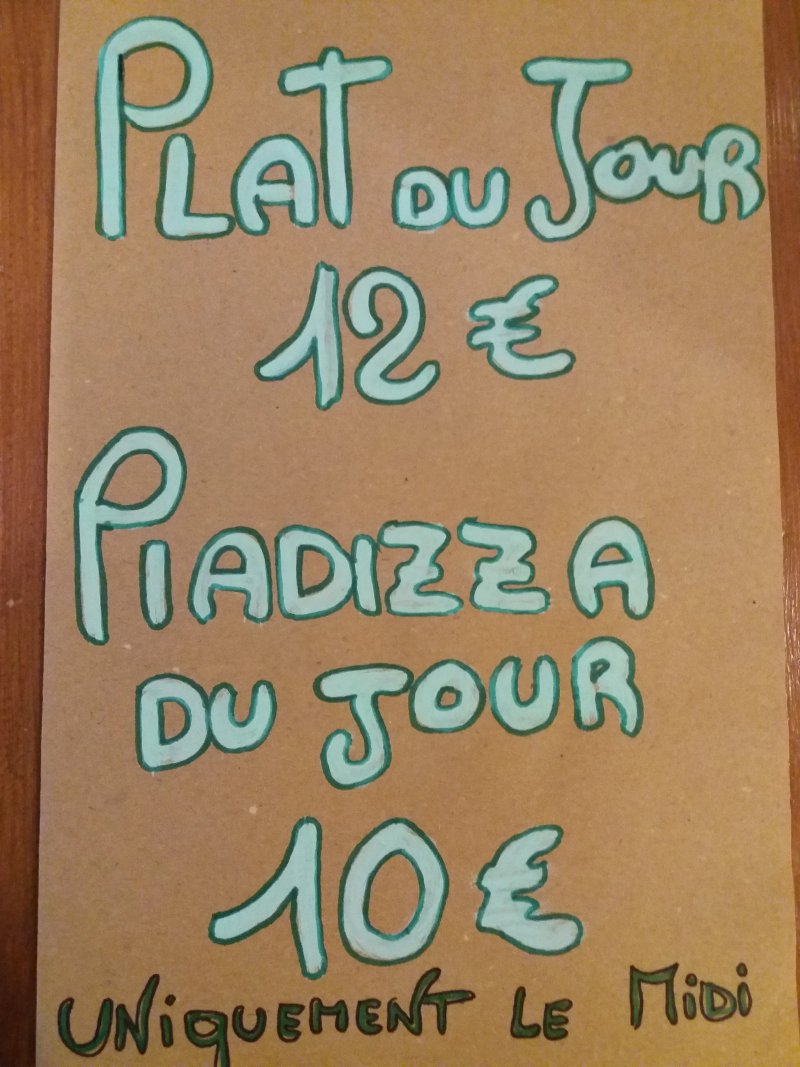 PLAT DU JOUR
12 €
PIADIZZA
DU JOUR
10 €
UNiQUEMENT LE MiDi